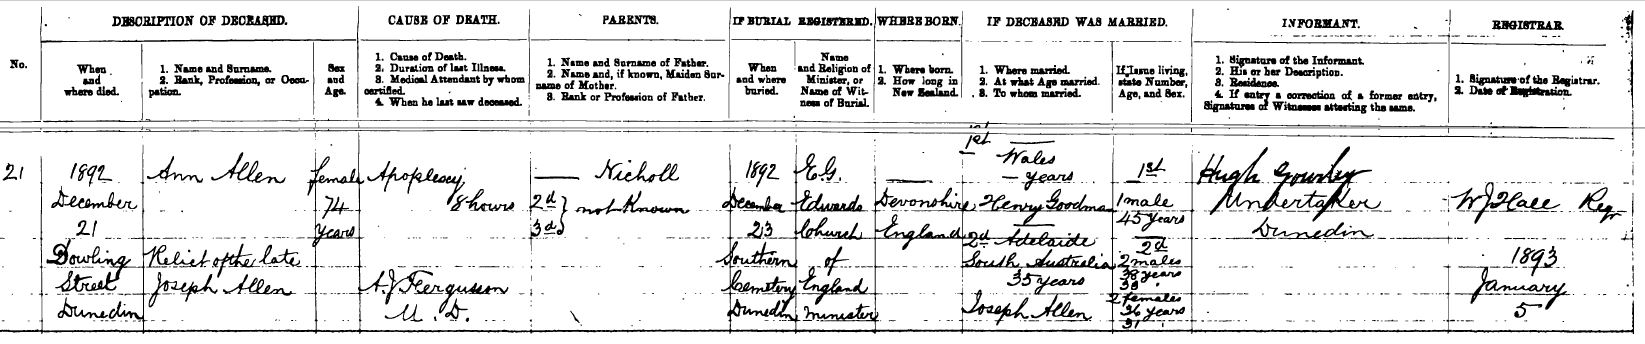 DESCRIPTION OF DECEASED.
CAUSE OF DEATH.
PARENTS.
IF BURIAL REGISTERED.
WHERE BORN.
IF DECEASED WAS MARRIED.
INFORMANT.
REGISTRAR.
No.
When
and
where died.
1. Name and Surname.
2. Rank, Profession, or Occu-
pation.
Sex
and
Age.
1. Cause of Death.
2. Duration of last Illness.
3. Medical Attendant by whom
certified.
4. When he last saw deceased.
1. Name and Surname of Father.
2. Name and, if known, Maiden Sur-
name of Mother.
3. Rank or Profession of Father.
When
and where
buried.
Name
and Religion of
Minister, or
Name of Wit-
ness of Burial.
1. Where born.
2. How long in
New Zealand.
1. Where married.
2. At what Age married.
3. To whom married.
If Issue living,
state Number,
Age, and Sex.
1. Signature of the Informant.
2. His or her Description.
3. Residence.
4. If entry a correction of a former entry,
Signatures of Witnesses attesting the same.
1. Signature of the Registrar.
2. Date of Registration.
21
1892
December
21
Dowling
Street
Dunedin
Ann Allen
Relict of the late
Joseph Allen
female
74
years
Apoplexy
8 hours
A.J. Fergusson
M.D.
— Nicholl
2d } not Known
3d }
1892
December
23
Southern
Cemetery
Dunedin
E.G.
Edwards
Church
of
England
minister
—
Devonshire
England
1st —
Wales
— years
Henry Goodman
2d Adelaide
South Australia
35 years
Joseph Allen
1st
1 male
45 years
2d
2 males
38 years
2 females
36 years
31
Hugh Gourley
Undertaker
Dunedin
W J Hall Regr
1893
January
5